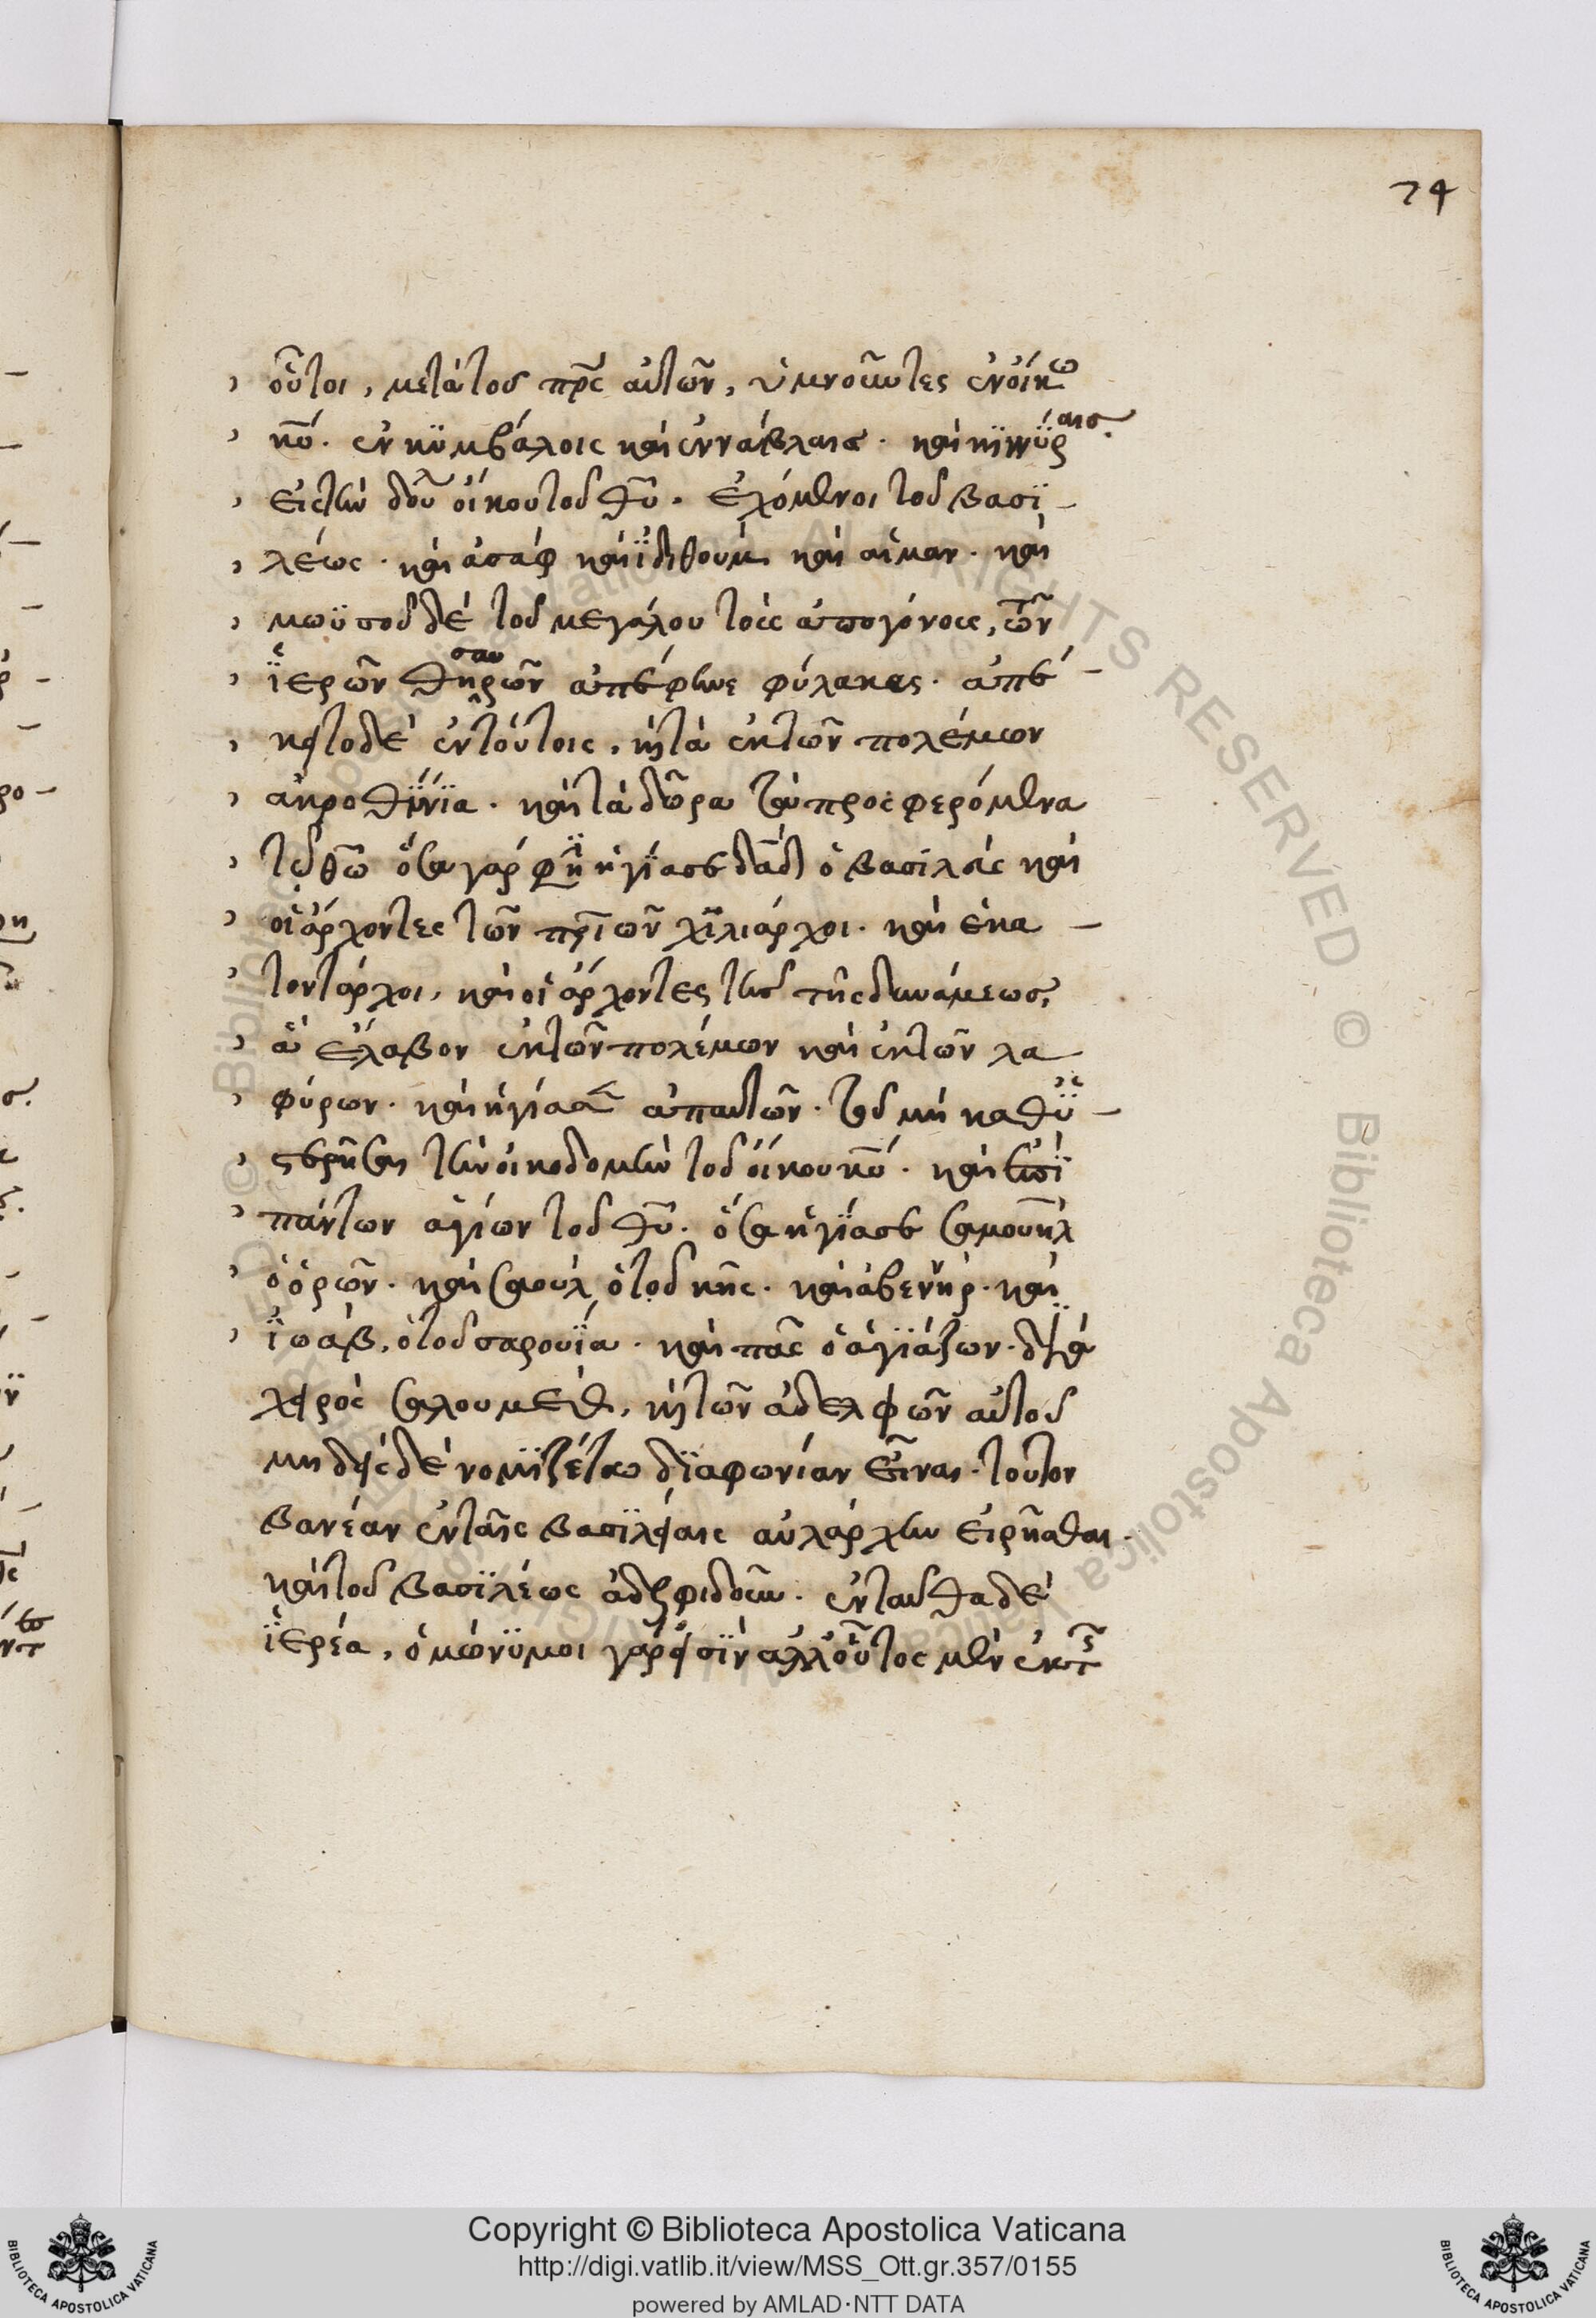 74
οὗτοι, μετὰ τοῦ πρ̅ς αὐτῶν, ὑμνοῦντες ἐν οἴκω
κ̅υ. ἐν κϋμβάλοις καὶ ἐν νάβλαις. καὶ κϊννύραις.
εἰς τὴν δου οἴκου τοῦ θ̅υ. ἐχόμενοι τοῦ βασϊ
λέως. καὶ ἀσάφ καὶ ἰδιθοὺμ καὶ αἱμαν. καὶ
μωϋσοῦ δὲ τοῦ μεγάλου τοὺς ἀπογόνους, τῶν
ἱερῶν θησαυρῶν ἀπέφηνε φύλακας. ἀπέ
κειτο δὲ ἐν τούτοις, καὶ τὰ ἐκ τῶν πολέμων
ἀκροθίνϊα. καὶ τὰ δῶρα τὰ προσφερόμενα
τῷ θ̅ω ὅσα γάρ φη ἡγίασε δα̅δ ὁ βασιλεὺς καὶ
οἱ ἄρχοντες τῶν πρι̅ῶν χϊλιάρχοι. καὶ ἑκα
τοντάρχοι, καὶ οἱ ἄρχοντες τῆς δυνάμεως,
ἃ ἔλαβον ἐκ τῶν πολέμων καὶ ἐκ τῶν λα
φύρων. καὶ ἡγίασαν ἀπ αὐτῶν. τοῦ μὴ καθϋ
στερῆσαι τὴν οἰκοδομὴν τοῦ οἴκου κ̅υ. καὶ ἐπὶ
πάντων ἁγίων τοῦ θ̅υ. ὅσα ἡγίασε σαμουὴλ
ὁ ὁρῶν. καὶ σαοὺλ ὁ τοῦ κῆς. καὶ ἀβεννὴρ. καὶ
ϊωὰβ, ὁ τοῦ σαρουΐα. καὶ πᾶς ὁ ἁγϊάζων. διὰ
χειρὸς σαλουμεὶθ, καὶ τῶν ἀδελφῶν αὐτοῦ
μηδεὶς δὲ νομϊζέτω δϊαφωνίαν εἶναι. τοῦτον
βανέαν ἐν ταῖς βασϊλείαις αὐλάρχην εἰρῆσθαι.
καὶ τοῦ βασϊλέως ἀδελφιδοῦν. ἐνταῦθα δὲ
ἱερέα, ὁμώνϋμοι γάρ εἰσϊν ἀλλ οὗτος μὲν ἐκ τῆς
Copyright © Biblioteca Apostolica Vaticana
http://digi.vatlib.it/view/MSS_Ott.gr.357/0155
powered by AMLAD·NTT DATA